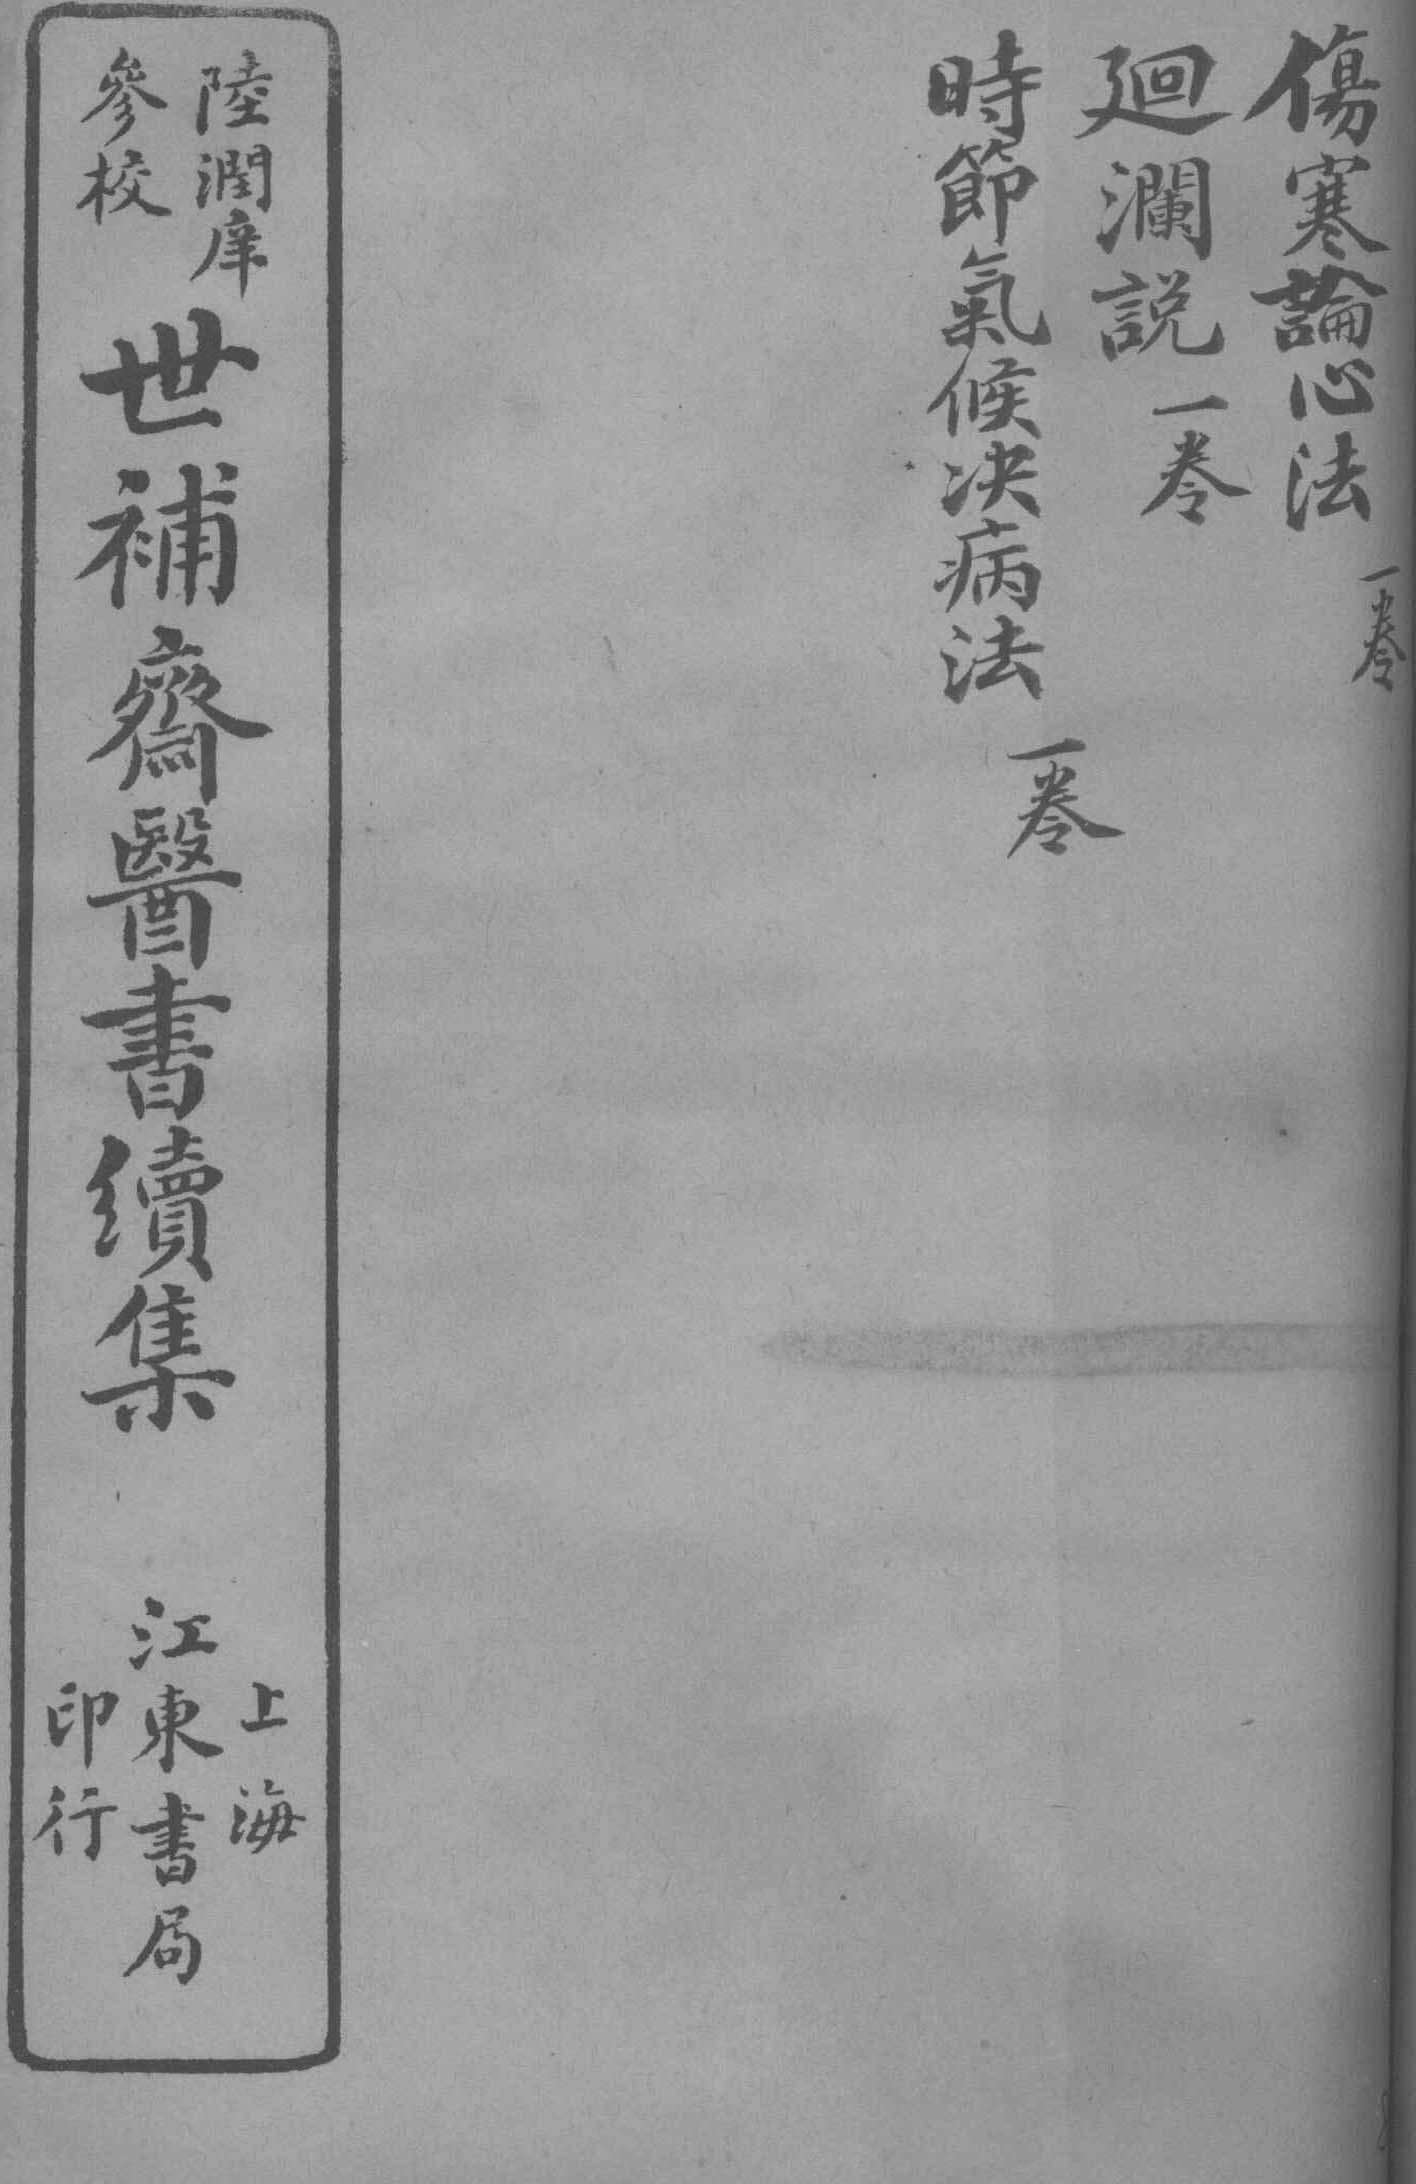 傷寒論心法 一卷
迴瀾説 一卷
時節氣候决病法 一卷
陸潤庠
參校
世補齋醫書續集
上海
江東書局
印行